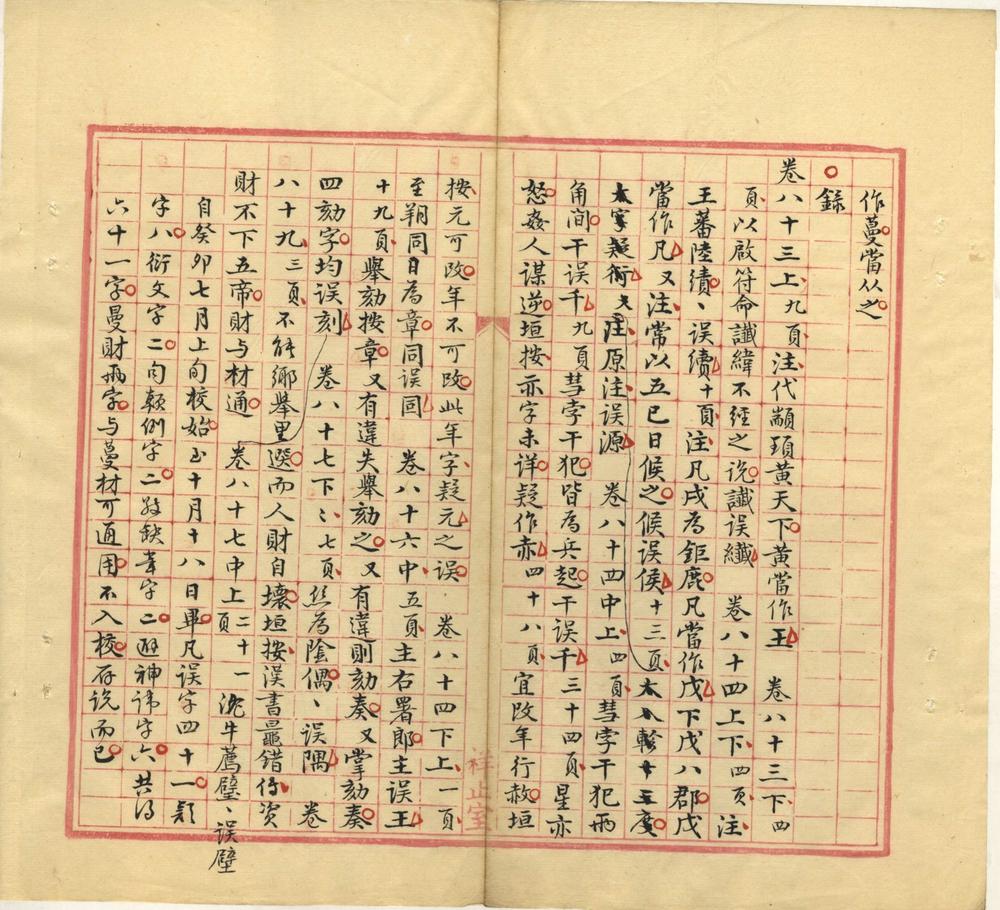 作蔓當从之
錄
卷八十三上、九頁、注代顓頊黃天下黃當作王 卷八十三下、四
頁、以啟符命讖緯不經之說讖誤纖 卷八十四上下、四頁、注
王蕃陸續、誤續十頁、注凡戌為鉅鹿凡當作戊下戊八郡戊
當作凡又注常以五巳日候之候誤侯十三頁
注原注誤源 卷八十四中上、四頁、彗孛干犯兩
角間干誤千九頁彗孛干犯皆為兵起干誤千三十四頁、星亦
怒姦人謀逆垣按亦字未詳疑作赤四十八頁、宜改年行赦垣
按元可改年不可改此年字疑元之誤 卷八十四下上、一頁
至朔同日為章同誤同 卷八十六中、五頁、主右署郎主誤王
十九頁、舉劾按章又有違失舉劾之又有違則劾奏又掌劾奏
四劾字均誤刻 卷八十七下、七頁、丝為陰偶、誤隅 卷
八十九、三頁、不能鄉舉里選而人財自壞垣按漢書鼂錯傳資
財不下五帝財与材通 卷八十七中上二十一頁 沈牛薦璧、誤壁
自癸卯七月上旬校始至十月十八日畢凡誤字四十一款
字八衍文字二句顛倒字二殘缺字二避神諱字六共得
六十一字曼財兩字与蔓材可通用不入校存說而已
祥止室